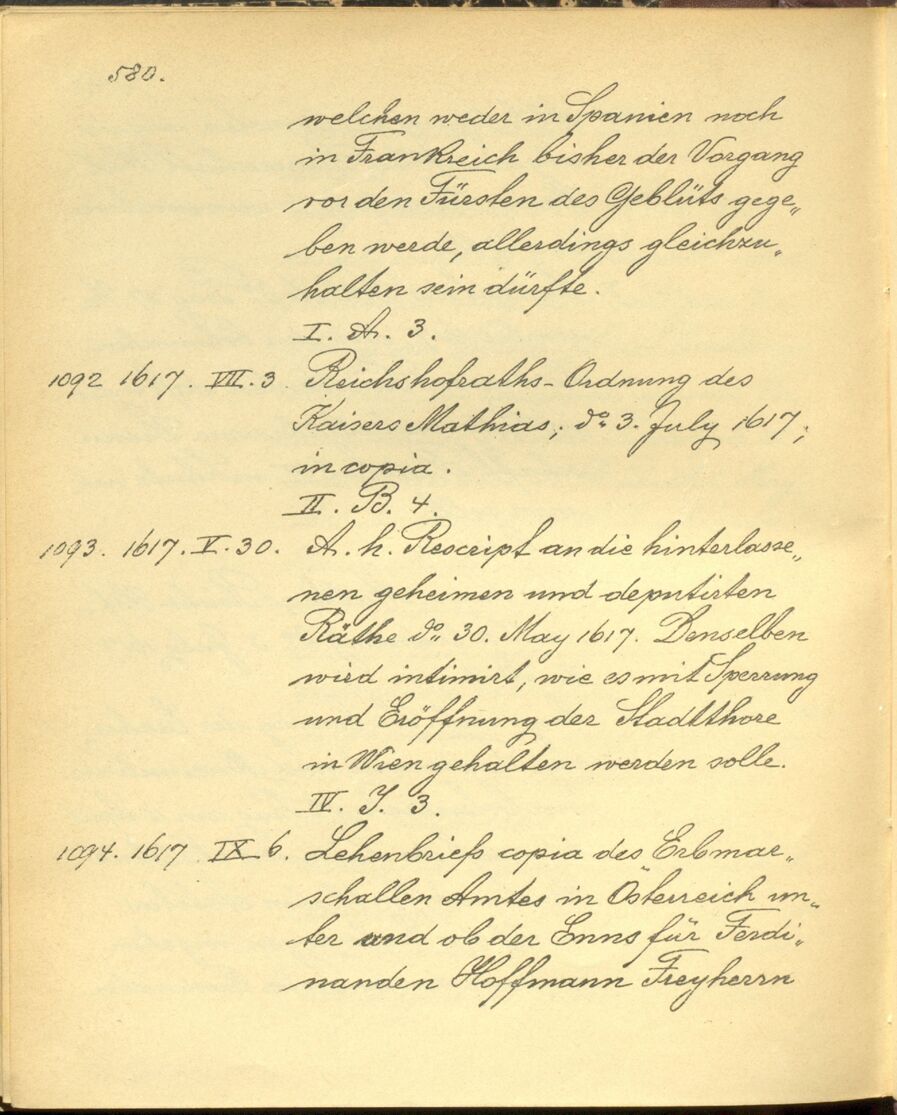 580.
welchen weder in Spanien noch
in Frankreich bisher der Vorgang
vor den Fürsten des Geblüts gege„
ben werde, allerdings gleichzu„
halten sein dürfte.
I. A. 3.
1092 1617. VII. 3. Reichshofraths-Ordnung des
Kaisers Mathias, do 3. July 1617,
in copia.
II. B. 4.
1093. 1617. V. 30. A. h. Rescript an die hinterlasse„
nen geheimen und deputirten
Räthe do 30. May 1617. Denselben
wird intimirt, wie es mit Sperrung
und Eröffnung der Stadtthore
in Wien gehalten werden solle.
IV. J. 3.
1094. 1617 IX 6. Lehenbriefs copia des Erbmar„
schallen Amtes in Österreich un„
ter und ob der Enns für Ferdi„
nanden Hoffmann Freyherrn